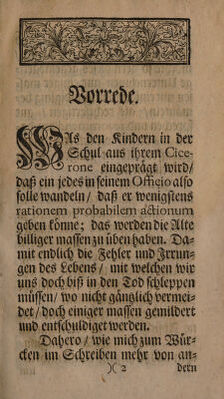 Vorrede.
WAs den Kindern in der
Schul aus ihrem Cice-
rone eingeprägt wird/
daß ein jedes in seinem Officio also
solle wandeln/ daß er wenigstens
rationem probabilem actionum
geben könne; das werden die Alte
billiger massen zu üben haben. Da-
mit endlich die Fehler und Irrun-
gen des Lebens/ mit welchen wir
uns doch biß in den Tod schleppen
müssen/ wo nicht gänzlich vermei-
det/ doch einiger massen gemildert
und entschuldiget werden.
Dahero/ wie mich zum Wür-
cken im Schreiben mehr von an-
)( 2 dern